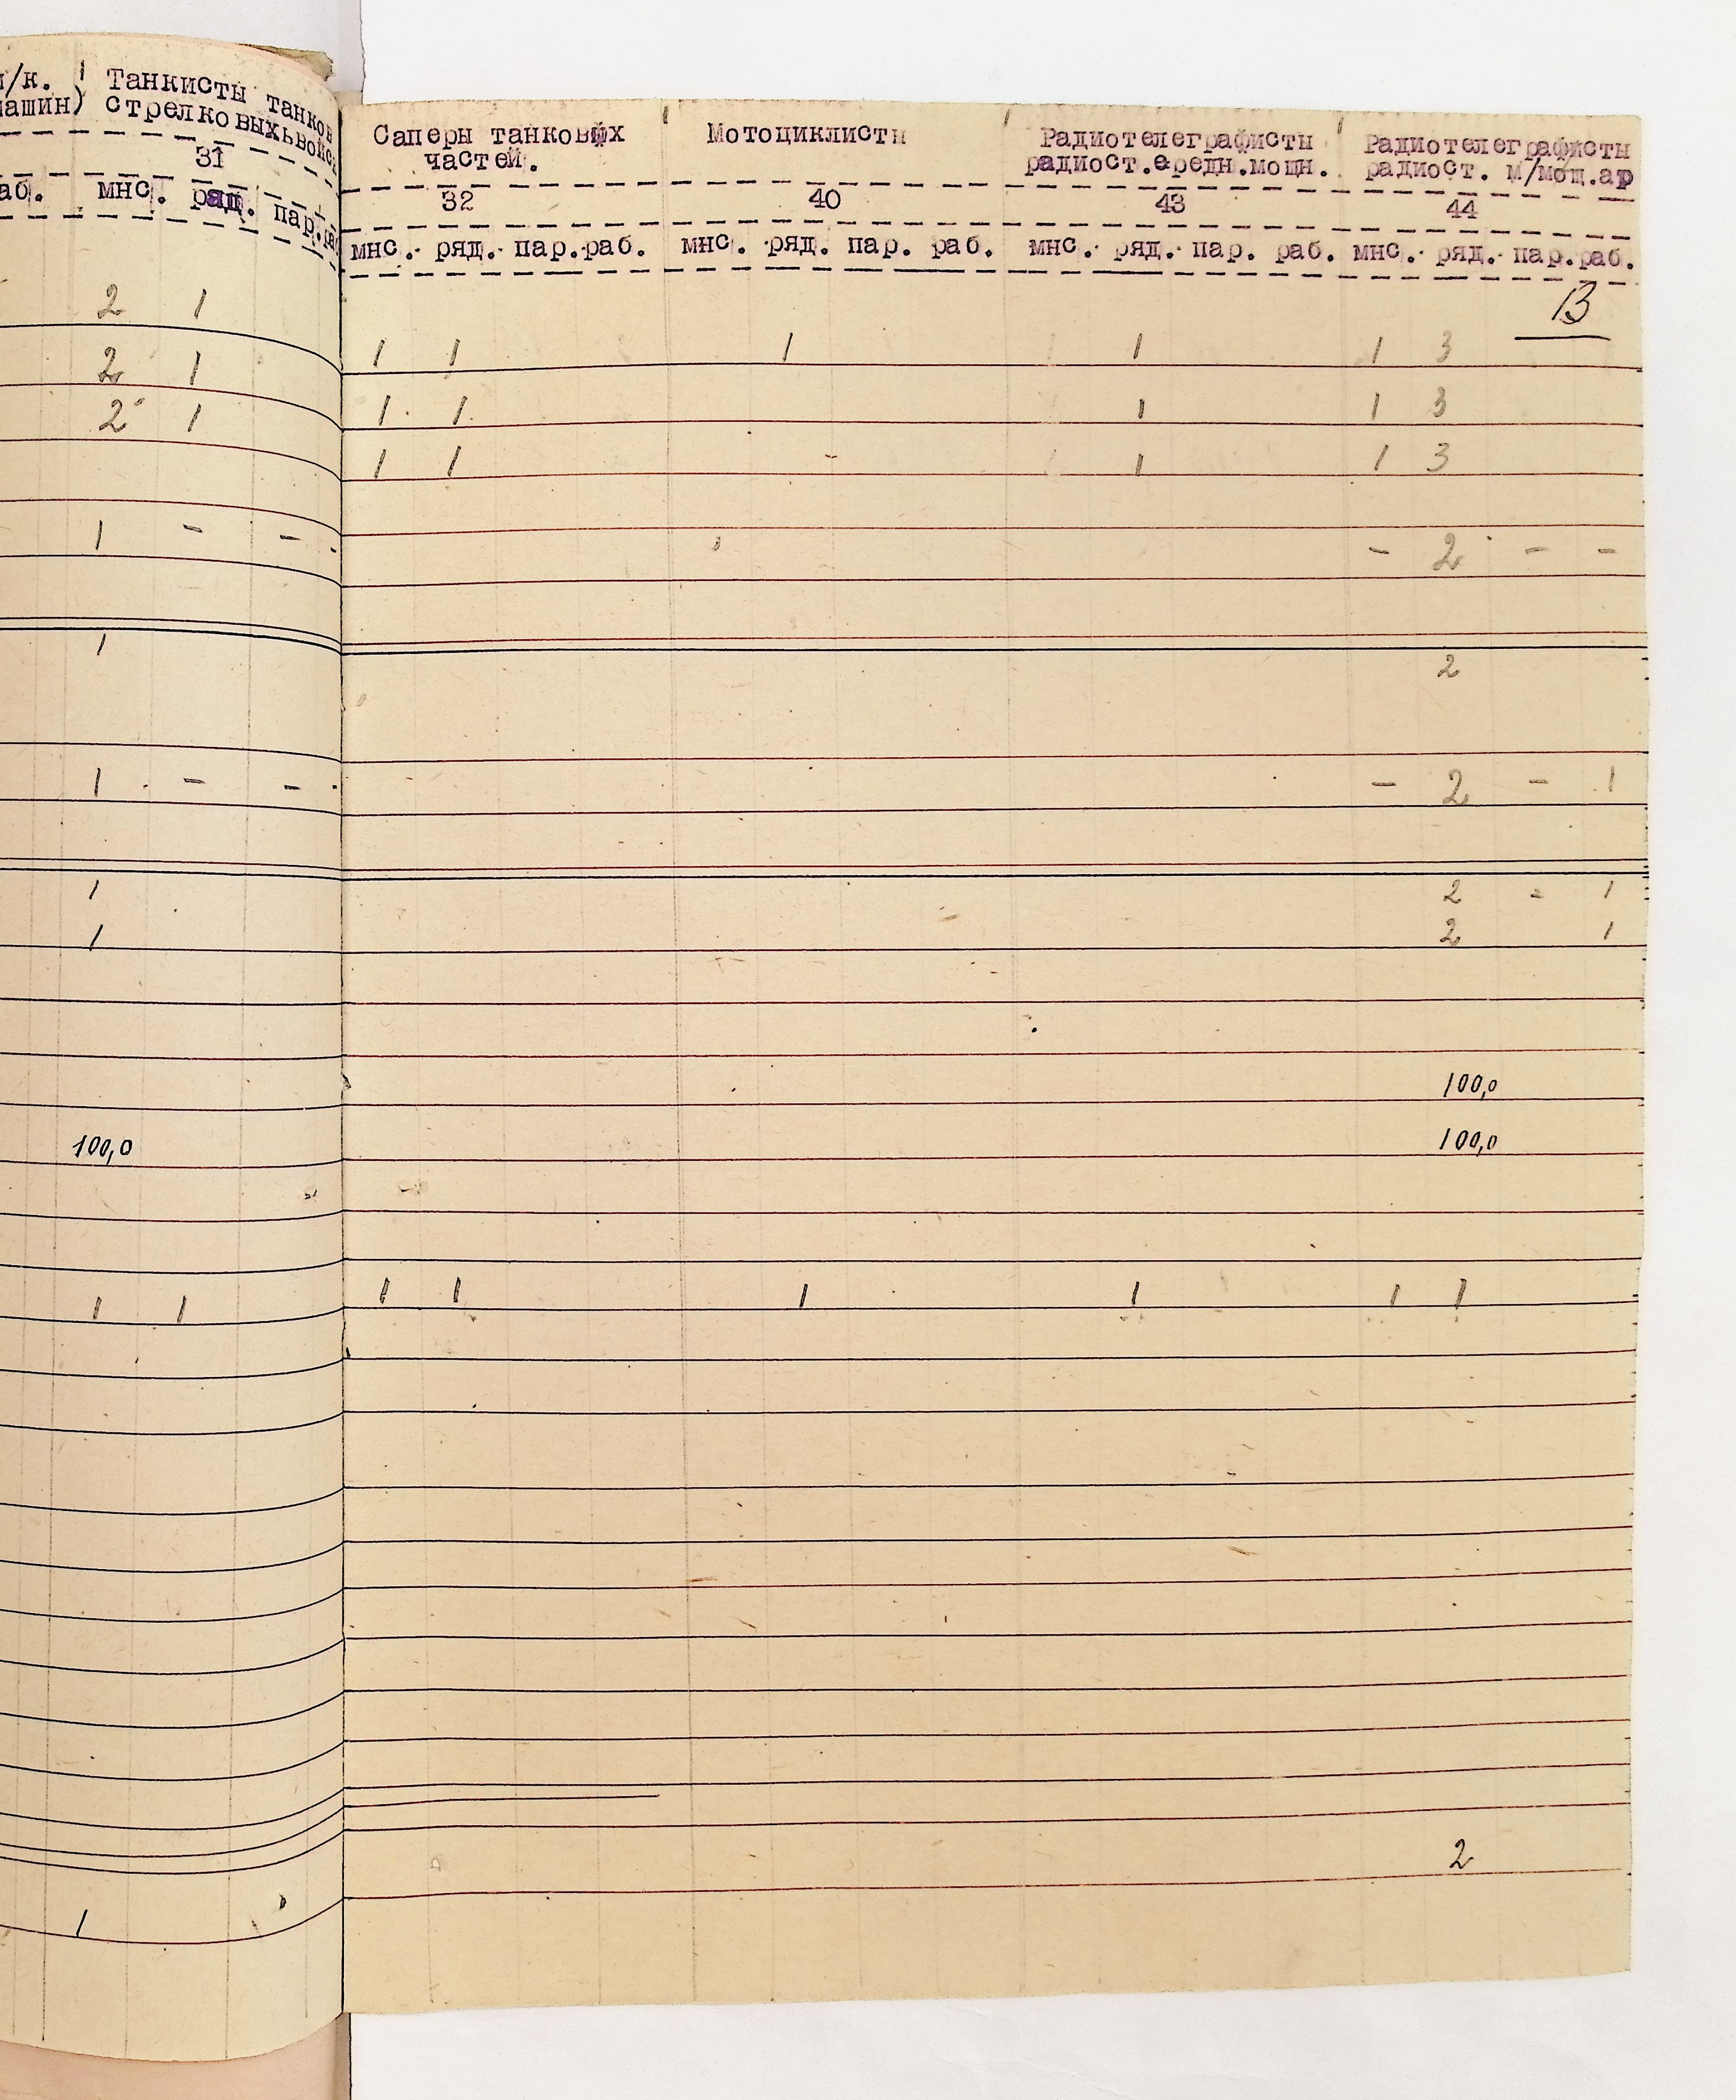 /к. Танкисты танков
ашин) стрелковыхьвойс
31
аб. мнс. ряд. пар.ра
Саперы танковых Мотоциклисты Радиотелеграфисты Радиотелеграфисты
частей. радиост.средн.мощн. радиост. м/мощ.ар
32 40 43 44
мнс. ряд. пар.раб. мнс. ряд. пар. раб. мнс. ряд. пар. раб. мнс. ряд. пар.раб.
13
2 1 1 1 1 1 1 3
2 1 1 1 1 1 3
2 1 1 1 1 1 3
1 - - - 2 - -
1 2
1 - - - 2 - 1
1 2 - 1
1 2 1
100,0
100,0 100,0
1 1 1 1 1 1 1 1
1 2